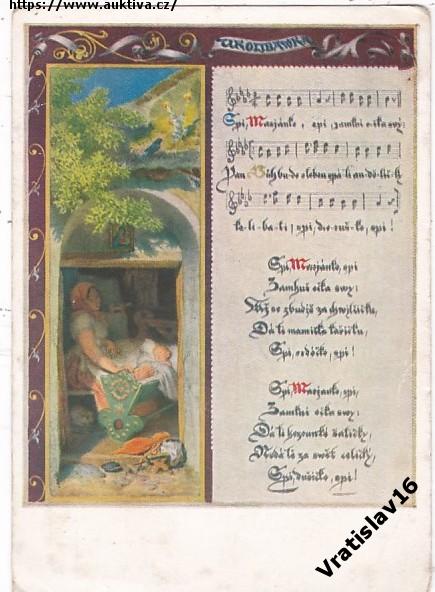 https://www.auktiva.cz/
UKOLÍBAVKA
Spi, Marjánko, spi, zamkni očka svý:
Pán Bůh bude s tebou spáti andělíčky
ko-lí-ba-ti, spi, du-šič-ko, spi!
Spi, Marjánko, spi
Zamkni očka svy:
Až se zbudíš za chvilčičku,
Dá ti mamička kašičku,
Spi, srdéčko, spi!
Spi, Marjánko, spi,
Zamkni očka svy:
Dá ti hezounké šatičky,
Spi, dušičko, spi!
Vratislav16